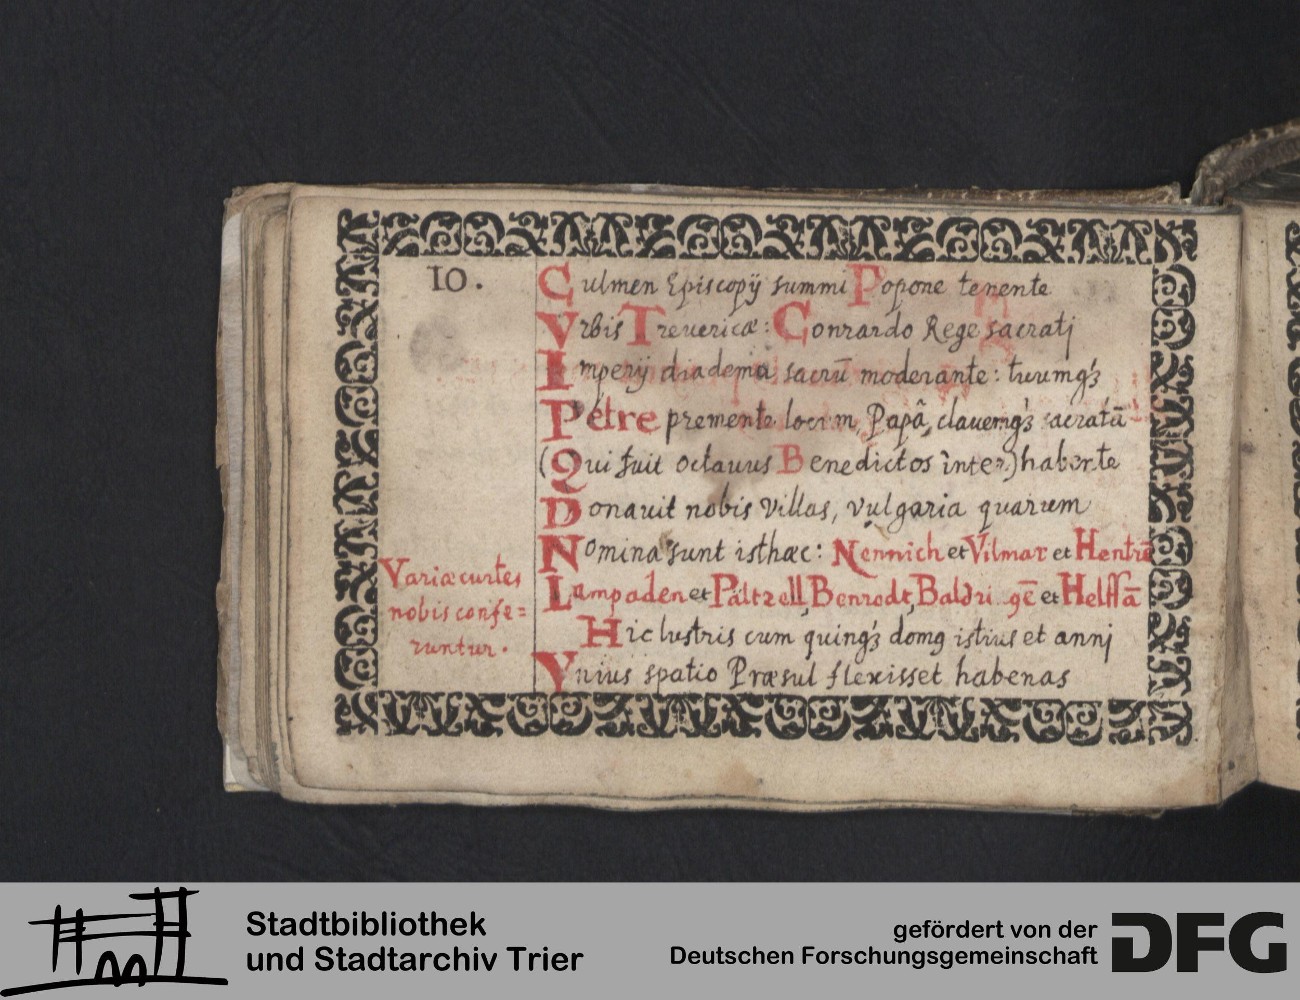 10.
Culmen Episcopÿ summi Popone tenente
Vrbis Treuericæ: Conrardo Rege sacratj
Imperÿ diadema sacrū moderante: tuumq́ꝫ
Petre premente locum, Papâ, clauemq́ꝫ sacratā
(Qui fuit octauus Benedictos inter) habente
Donauit nobis villas, vulgaria quarum
Nomina sunt isthæc: Nennich et Vilmar et Hentrē
Variæ curtes
Lampaden et Paltzell, Benrodt, Baldri gē et Helffā
nobis confe=
Hic lustris cum quinq́ꝫ domꝯ istius et annj
runtur.
Vnius spatio Præsul flexisset habenas
Stadtbibliothek
und Stadtarchiv Trier
gefördert von der
Deutschen Forschungsgemeinschaft
DFG